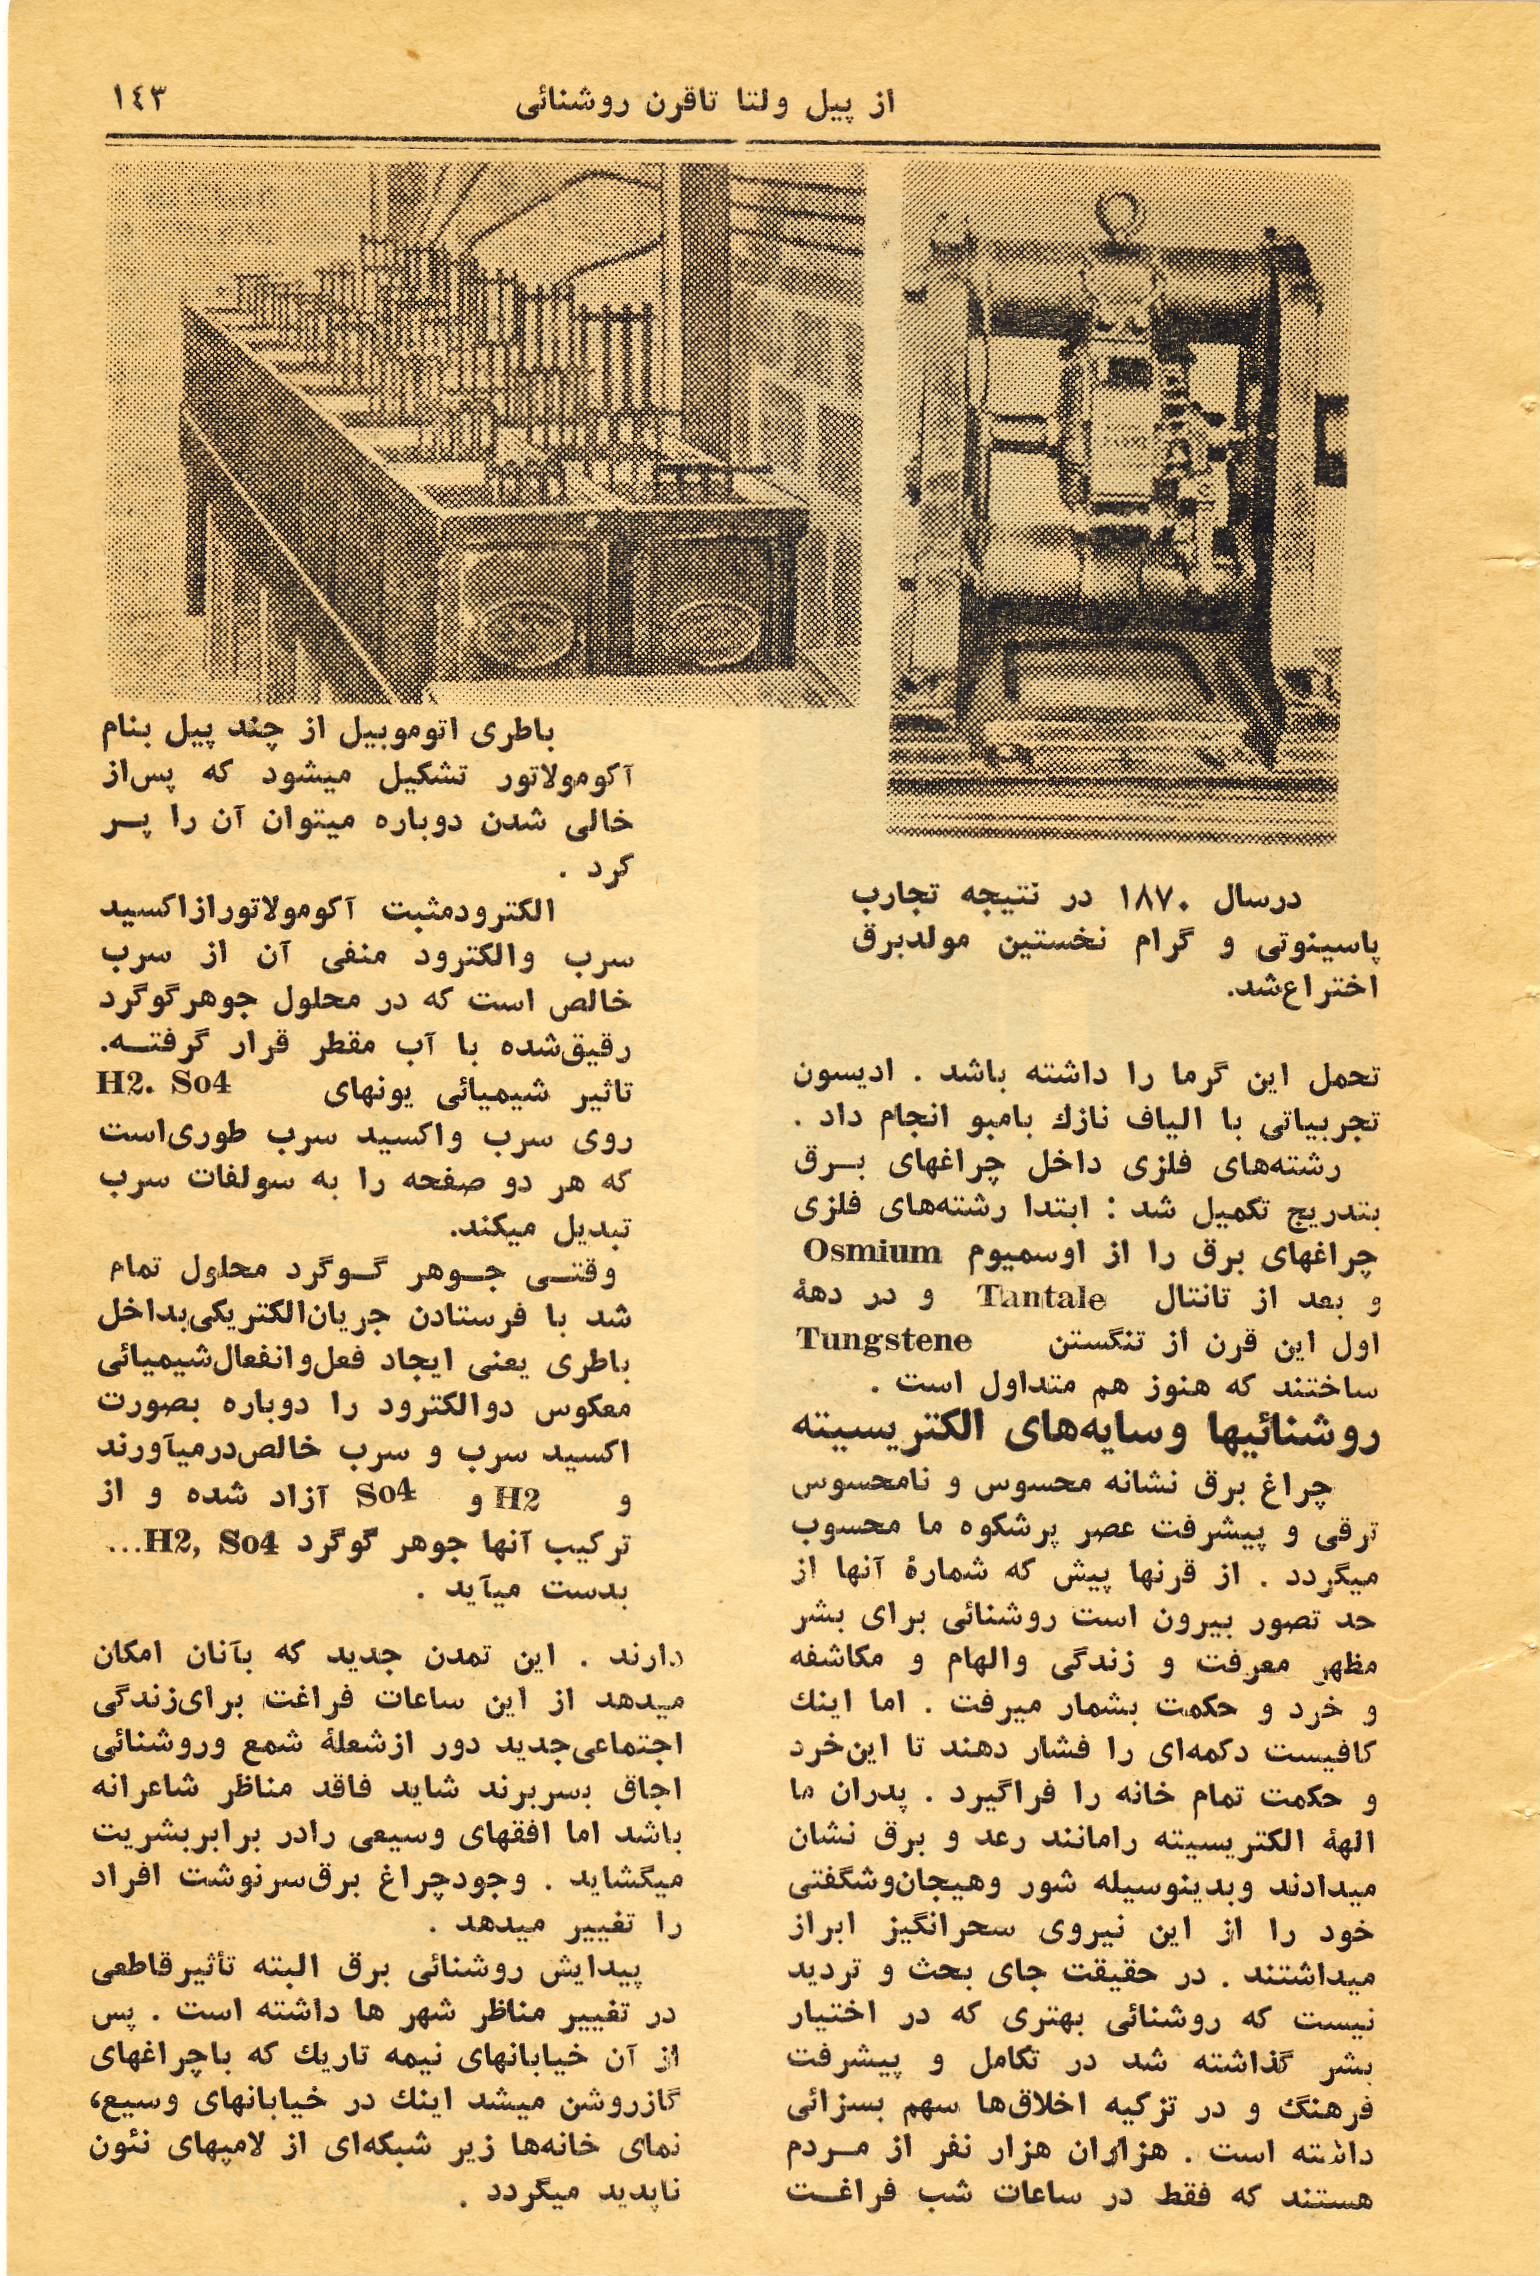 از پیل ولتا تاقرن روشنائی
۱۴۳
درسال ۱۸۷۰ در نتیجه تجارب
پاسینوتی و گرام نخستین مولدبرق
اختراع‌شد.
تحمل این گرما را داشته باشد . ادیسون
تجربیاتی با الیاف نازك بامبو انجام داد .
رشته‌های فلزی داخل چراغهای بـرق
بتدریج تکمیل شد : ابتدا رشته‌های فلزی
چراغهای برق را از اوسمیوم Osmium
و بعد از تانتال Tantale و در دههٔ
اول این قرن از تنگستن Tungstene
ساختند که هنوز هم متداول است .
روشنائیها وسایه‌های الکتریسیته
چراغ برق نشانه محسوس و نامحسوس
ترقی و پیشرفت عصر پرشکوه ما محسوب
میگردد . از قرنها پیش که شمارهٔ آنها از
حد تصور بیرون است روشنائی برای بشر
مظهر معرفت و زندگی والهام و مکاشفه
و خرد و حکمت بشمار میرفت . اما اینك
کافیست دکمه‌ای را فشار دهند تا این‌خرد
و حکمت تمام خانه را فراگیرد . پدران ما
الههٔ الکتریسیته رامانند رعد و برق نشان
میدادند وبدینوسیله شور وهیجان‌وشگفتی
خود را از این نیروی سحرانگیز ابراز
میداشتند . در حقیقت جای بحث و تردید
نیست که روشنائی بهتری که در اختیار
بشر گذاشته شد در تکامل و پیشرفت
فرهنگ و در تزکیه اخلاق‌ها سهم بسزائی
داشته است . هزاران هزار نفر از مـردم
هستند که فقط در ساعات شب فراغـت
باطری اتوموبیل از چند پیل بنام
آکومولاتور تشکیل میشود که پس‌از
خالی شدن دوباره میتوان آن را پـر
کرد .
الکترودمثبت آکومولاتورازاکسید
سرب والکترود منفی آن از سرب
خالص است که در محلول جوهرگوگرد
رقیق‌شده با آب مقطر قرار گرفتـه.
تاثیر شیمیائی یونهای H2. So4
روی سرب واکسید سرب طوری‌است
که هر دو صفحه را به سولفات سرب
تبدیل میکند.
وقتـی جـوهر گـوگرد محلول تمام
شد با فرستادن جریان‌الکتریکی‌بداخل
باطری یعنی ایجاد فعل‌وانفعال‌شیمیائی
معکوس دوالکترود را دوباره بصورت
اکسید سرب و سرب خالص‌درمیآورند
و H2 و So4 آزاد شده و از
ترکیب آنها جوهر گوگرد H2, So4...
بدست میآید .
دارند . این تمدن جدید که بآنان امکان
میدهد از این ساعات فراغت برای‌زندگی
اجتماعی‌جدید دور ازشعلهٔ شمع وروشنائی
اجاق بسربرند شاید فاقد مناظر شاعرانه
باشد اما افقهای وسیعی رادر برابربشریت
میگشاید . وجودچراغ برق‌سرنوشت افراد
را تغییر میدهد .
پیدایش روشنائی برق البته تأثیرقاطعی
در تغییر مناظر شهر ها داشته است . پس
از آن خیابانهای نیمه تاریك که باچراغهای
گازروشن میشد اینك در خیابانهای وسیع،
نمای خانه‌ها زیر شبکه‌ای از لامپهای نئون
ناپدید میگردد .